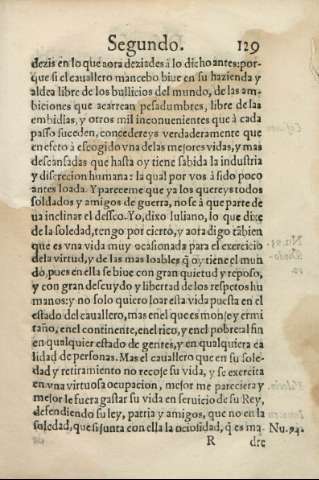 Segundo. 129
dezis en lo que aora deziades à lo dicho antes: por-
que si el cauallero mancebo biue en su hazienda y
aldea libre de los bullicios del mundo, de las am-
biciones que acarrean pesadumbres, libre de las
embidias, y otros mil inconuenientes que à cada
passo suceden, concedereys verdaderamente que
en efeto à escogido vna de las mejores vidas, y mas
descansadas que hasta oy tiene sabida la industria
y discrecion humana: la qual por vos à sido poco
antes loada. Y pareceme que ya los quereys todos
soldados y amigos de guerra, no se à que parte de
ua inclinar el desseo. Yo, dixo Iuliano, lo que dixe
de la soledad, tengo por cierto, y aora digo tãbien
que es vna vida muy ocasionada para el exercicio
de la virtud, y de las mas loables q̃ oy tiene el mun
do, pues en ella se biue con gran quietud y reposo,
y con gran descuydo y libertad de los respetos hu
manos: y no solo quiero loar esta vida puesta en el
estado del cauallero, mas en el que es monje y ermi
taño, en el continente, en el rico, y en el pobre: al fin
en qualquier estado de gentes, y en qualquiera ca
lidad de personas. Mas el cauallero que en su sole-
dad y retiramiento no recoje su vida, y se exercita
en vna virtuosa ocupacion, mejor me pareciera y
mejor le fuera gastar su vida en seruicio de su Rey,
defendiendo su ley, patria y amigos, que no en la
soledad, que si junta con ella la ociosidad, q̃ es ma- Nu. 94.
R dre